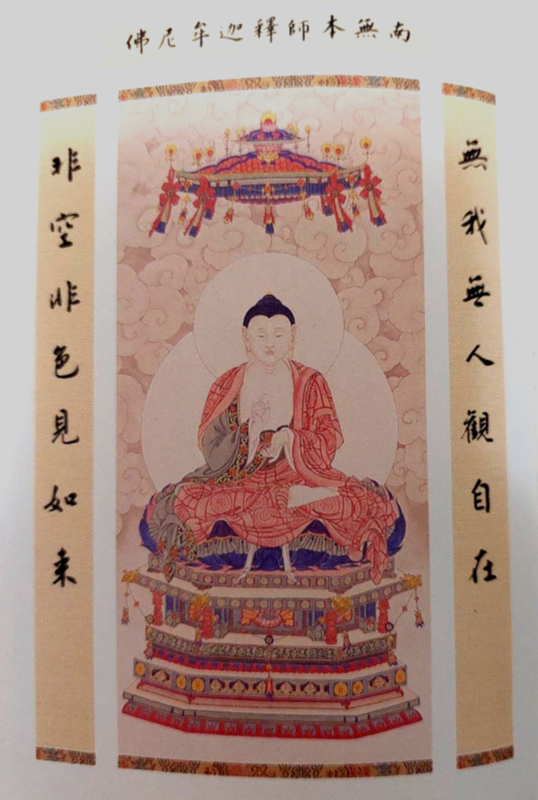 南無本師釋迦牟尼佛
無我無人觀自在
非空非色見如来